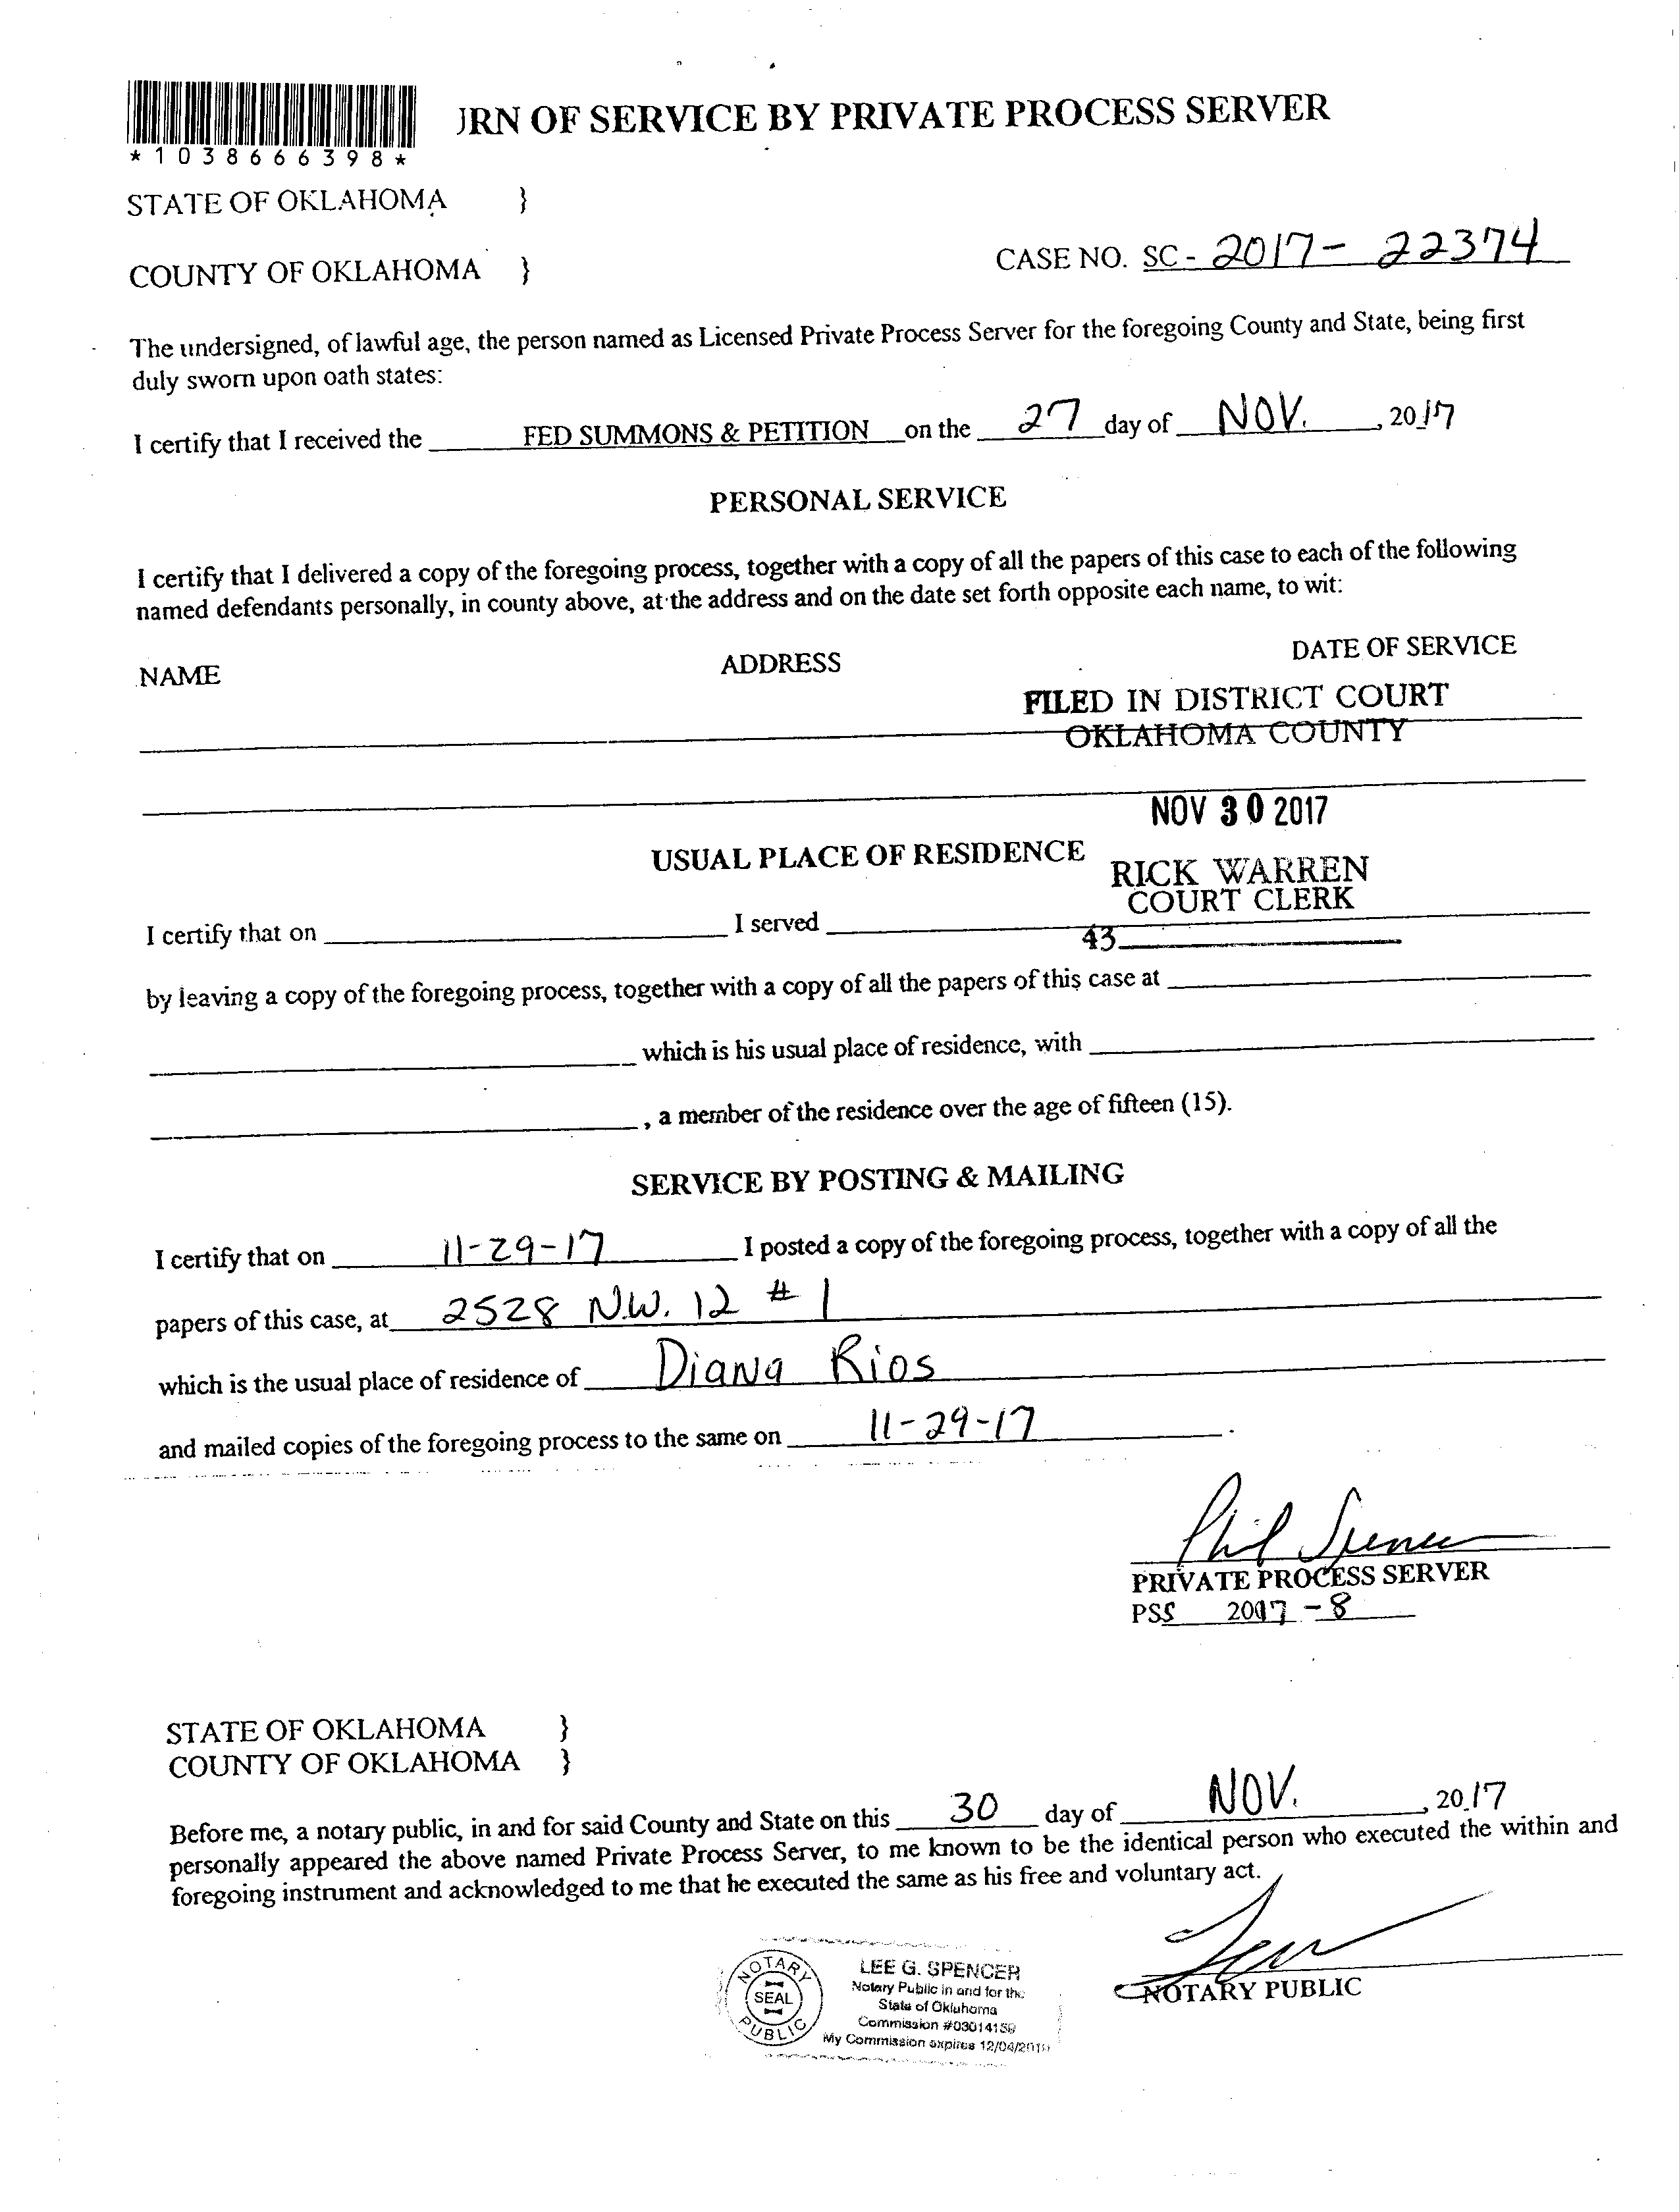 JRN OF SERVICE BY PRIVATE PROCESS SERVER
*1038666398*
STATE OF OKLAHOMA }
CASE NO. SC - 2017 - 22374
COUNTY OF OKLAHOMA }
The undersigned, of lawful age, the person named as Licensed Private Process Server for the foregoing County and State, being first
duly sworn upon oath states:
I certify that I received the FED SUMMONS & PETITION on the 27 day of NOV. , 2017
PERSONAL SERVICE
I certify that I delivered a copy of the foregoing process, together with a copy of all the papers of this case to each of the following
named defendants personally, in county above, at the address and on the date set forth opposite each name, to wit:
NAME ADDRESS DATE OF SERVICE
FILED IN DISTRICT COURT
OKLAHOMA COUNTY
NOV 30 2017
USUAL PLACE OF RESIDENCE
RICK WARREN
COURT CLERK
I certify that on I served
43
by leaving a copy of the foregoing process, together with a copy of all the papers of this case at
which is his usual place of residence, with
, a member of the residence over the age of fifteen (15).
SERVICE BY POSTING & MAILING
I certify that on 11-29-17 I posted a copy of the foregoing process, together with a copy of all the
papers of this case, at 2528 N.W. 12 # 1
which is the usual place of residence of Diana Rios
and mailed copies of the foregoing process to the same on 11-29-17 .
Phil Spencer
PRIVATE PROCESS SERVER
PSS 2017 - 8
STATE OF OKLAHOMA }
COUNTY OF OKLAHOMA }
Before me, a notary public, in and for said County and State on this 30 day of NOV. , 2017
personally appeared the above named Private Process Server, to me known to be the identical person who executed the within and
foregoing instrument and acknowledged to me that he executed the same as his free and voluntary act.
NOTARY PUBLIC
NOTARY
SEAL
PUBLIC
LEE G. SPENCER
Notary Public in and for the
State of Oklahoma
Commission #03014159
My Commission expires 12/04/2019